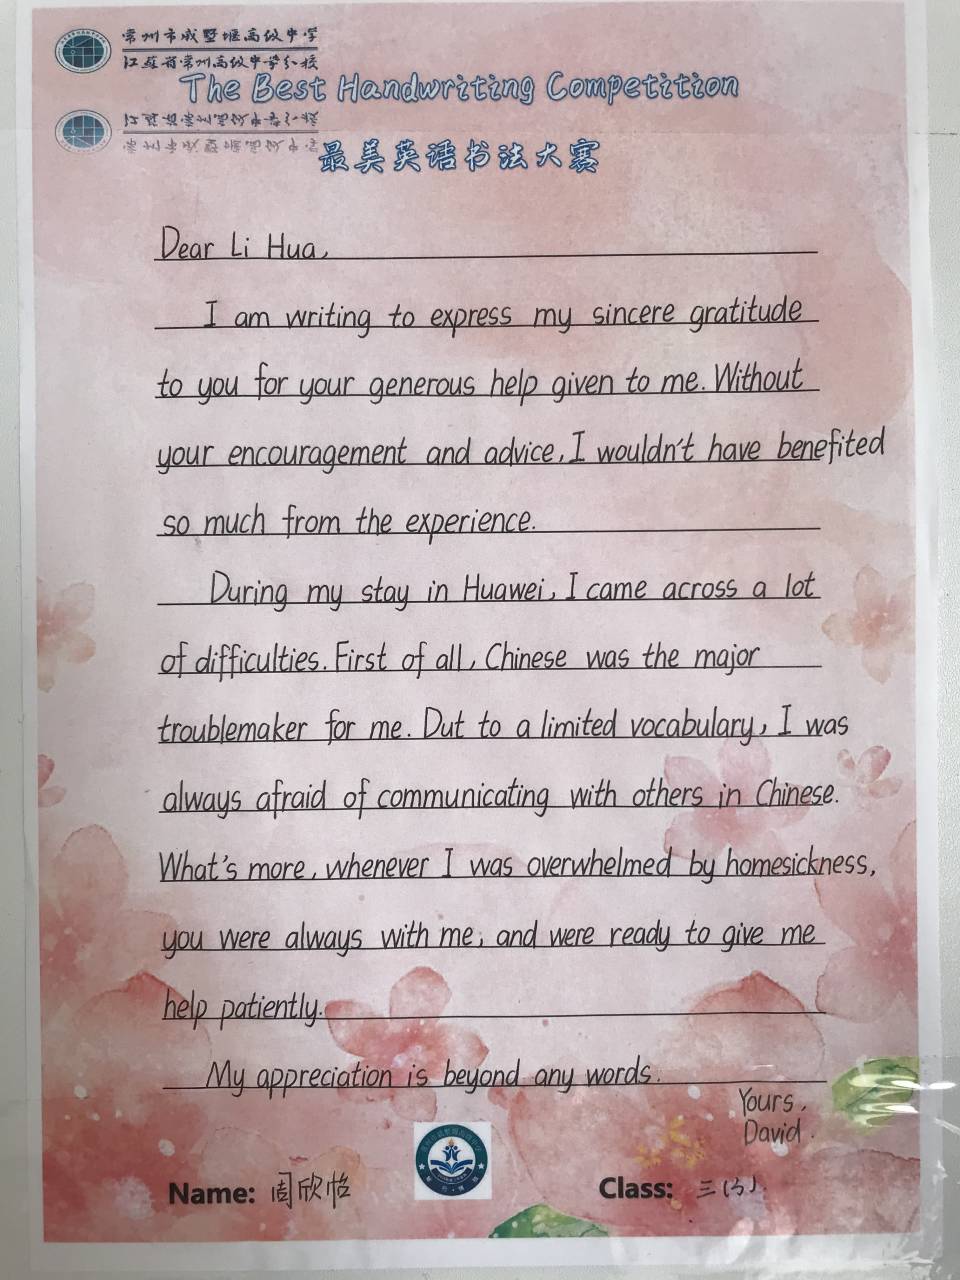 常州市戚墅堰高级中学
江苏省常州高级中学分校
The Best Handwriting Competition
最美英语书法大赛
Dear Li Hua,
I am writing to express my sincere gratitude
to you for your generous help given to me. Without
your encouragement and advice, I wouldn't have benefited
so much from the experience.
During my stay in Huawei, I came across a lot
of difficulties. First of all, Chinese was the major
troublemaker for me. Dut to a limited vocabulary, I was
always afraid of communicating with others in Chinese.
What's more, whenever I was overwhelmed by homesickness,
you were always with me, and were ready to give me
help patiently.
My appreciation is beyond any words.
Yours,
David.
Name: 周欣怡
Class: 三